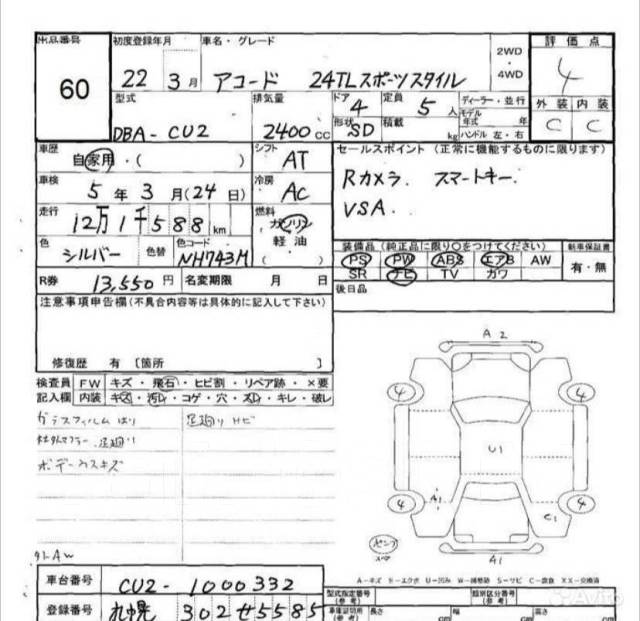 出品番号 初度登録年月 車名・グレード 2WD・4WD 評価点
60 22年 3月 アコード 24TLスポーツスタイル 4
型式 排気量 ドア 4 定員 5人 ディーラー・並行 外装 内装
DBA-CU2 2400cc 形状 SD 積載 kg モデル年式 年 ハンドル 左・右 C C
車歴 シフト セールスポイント (正常に機能するものに限ります)
自家用・( ) AT
車検 冷房 Rカメラ. スマートキー.
5年 3月(24日) AC VSA.
走行 燃料
12万1千588km ガソリン
色 色替 色コード 軽油 装備品(純正品に限り○をつけてください) 新車保証書
シルバー NH743M ( ) PS PW ABS エアB AW 有・無
R券 13,550円 名変期限 月 日 SR ナビ TV カワ
注意事項申告欄(不具合内容等は具体的に記入して下さい) 後日品
修復歴 有 〔箇所 〕
検査員 FW キズ・飛石・ヒビ割・リペア跡・×要
記入欄 内装 キズ・汚れ・コゲ・穴・スレ・キレ・破レ
ガラスフィルムはり 足廻りサビ
社外マフラー, 足廻り
ボデー小スキズ
A2
4 4
U1
A1
4 4
C1
A1
A-キズ E-エクボ U-凹み W-補修跡 S-サビ C-腐食 XX-交換済
車台番号 CU2-1000332 型式指定番号(参考) 類別区分番号(参考)
登録番号 札幌 302せ5585 車庫証明用(参考) 長さ 幅 高さ
Avito